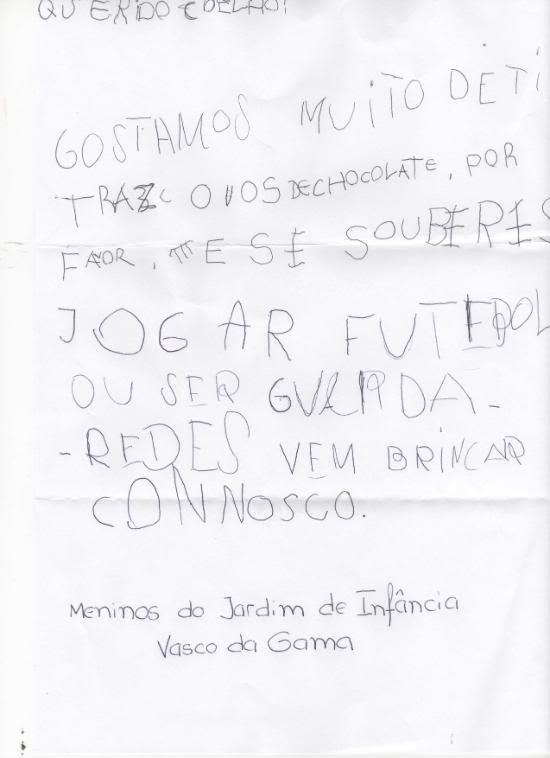 QUERIDO COELHO!
GOSTAMOS MUITO DE TI
TRAZ OVOS DE CHOCOLATE, POR
FAVOR, E SE SOUBERES
JOGAR FUTEBOL
OU SER GUARDA-
-REDES VEM BRINCAR
CONNOSCO.
Meninos do Jardim de Infância
Vasco da Gama